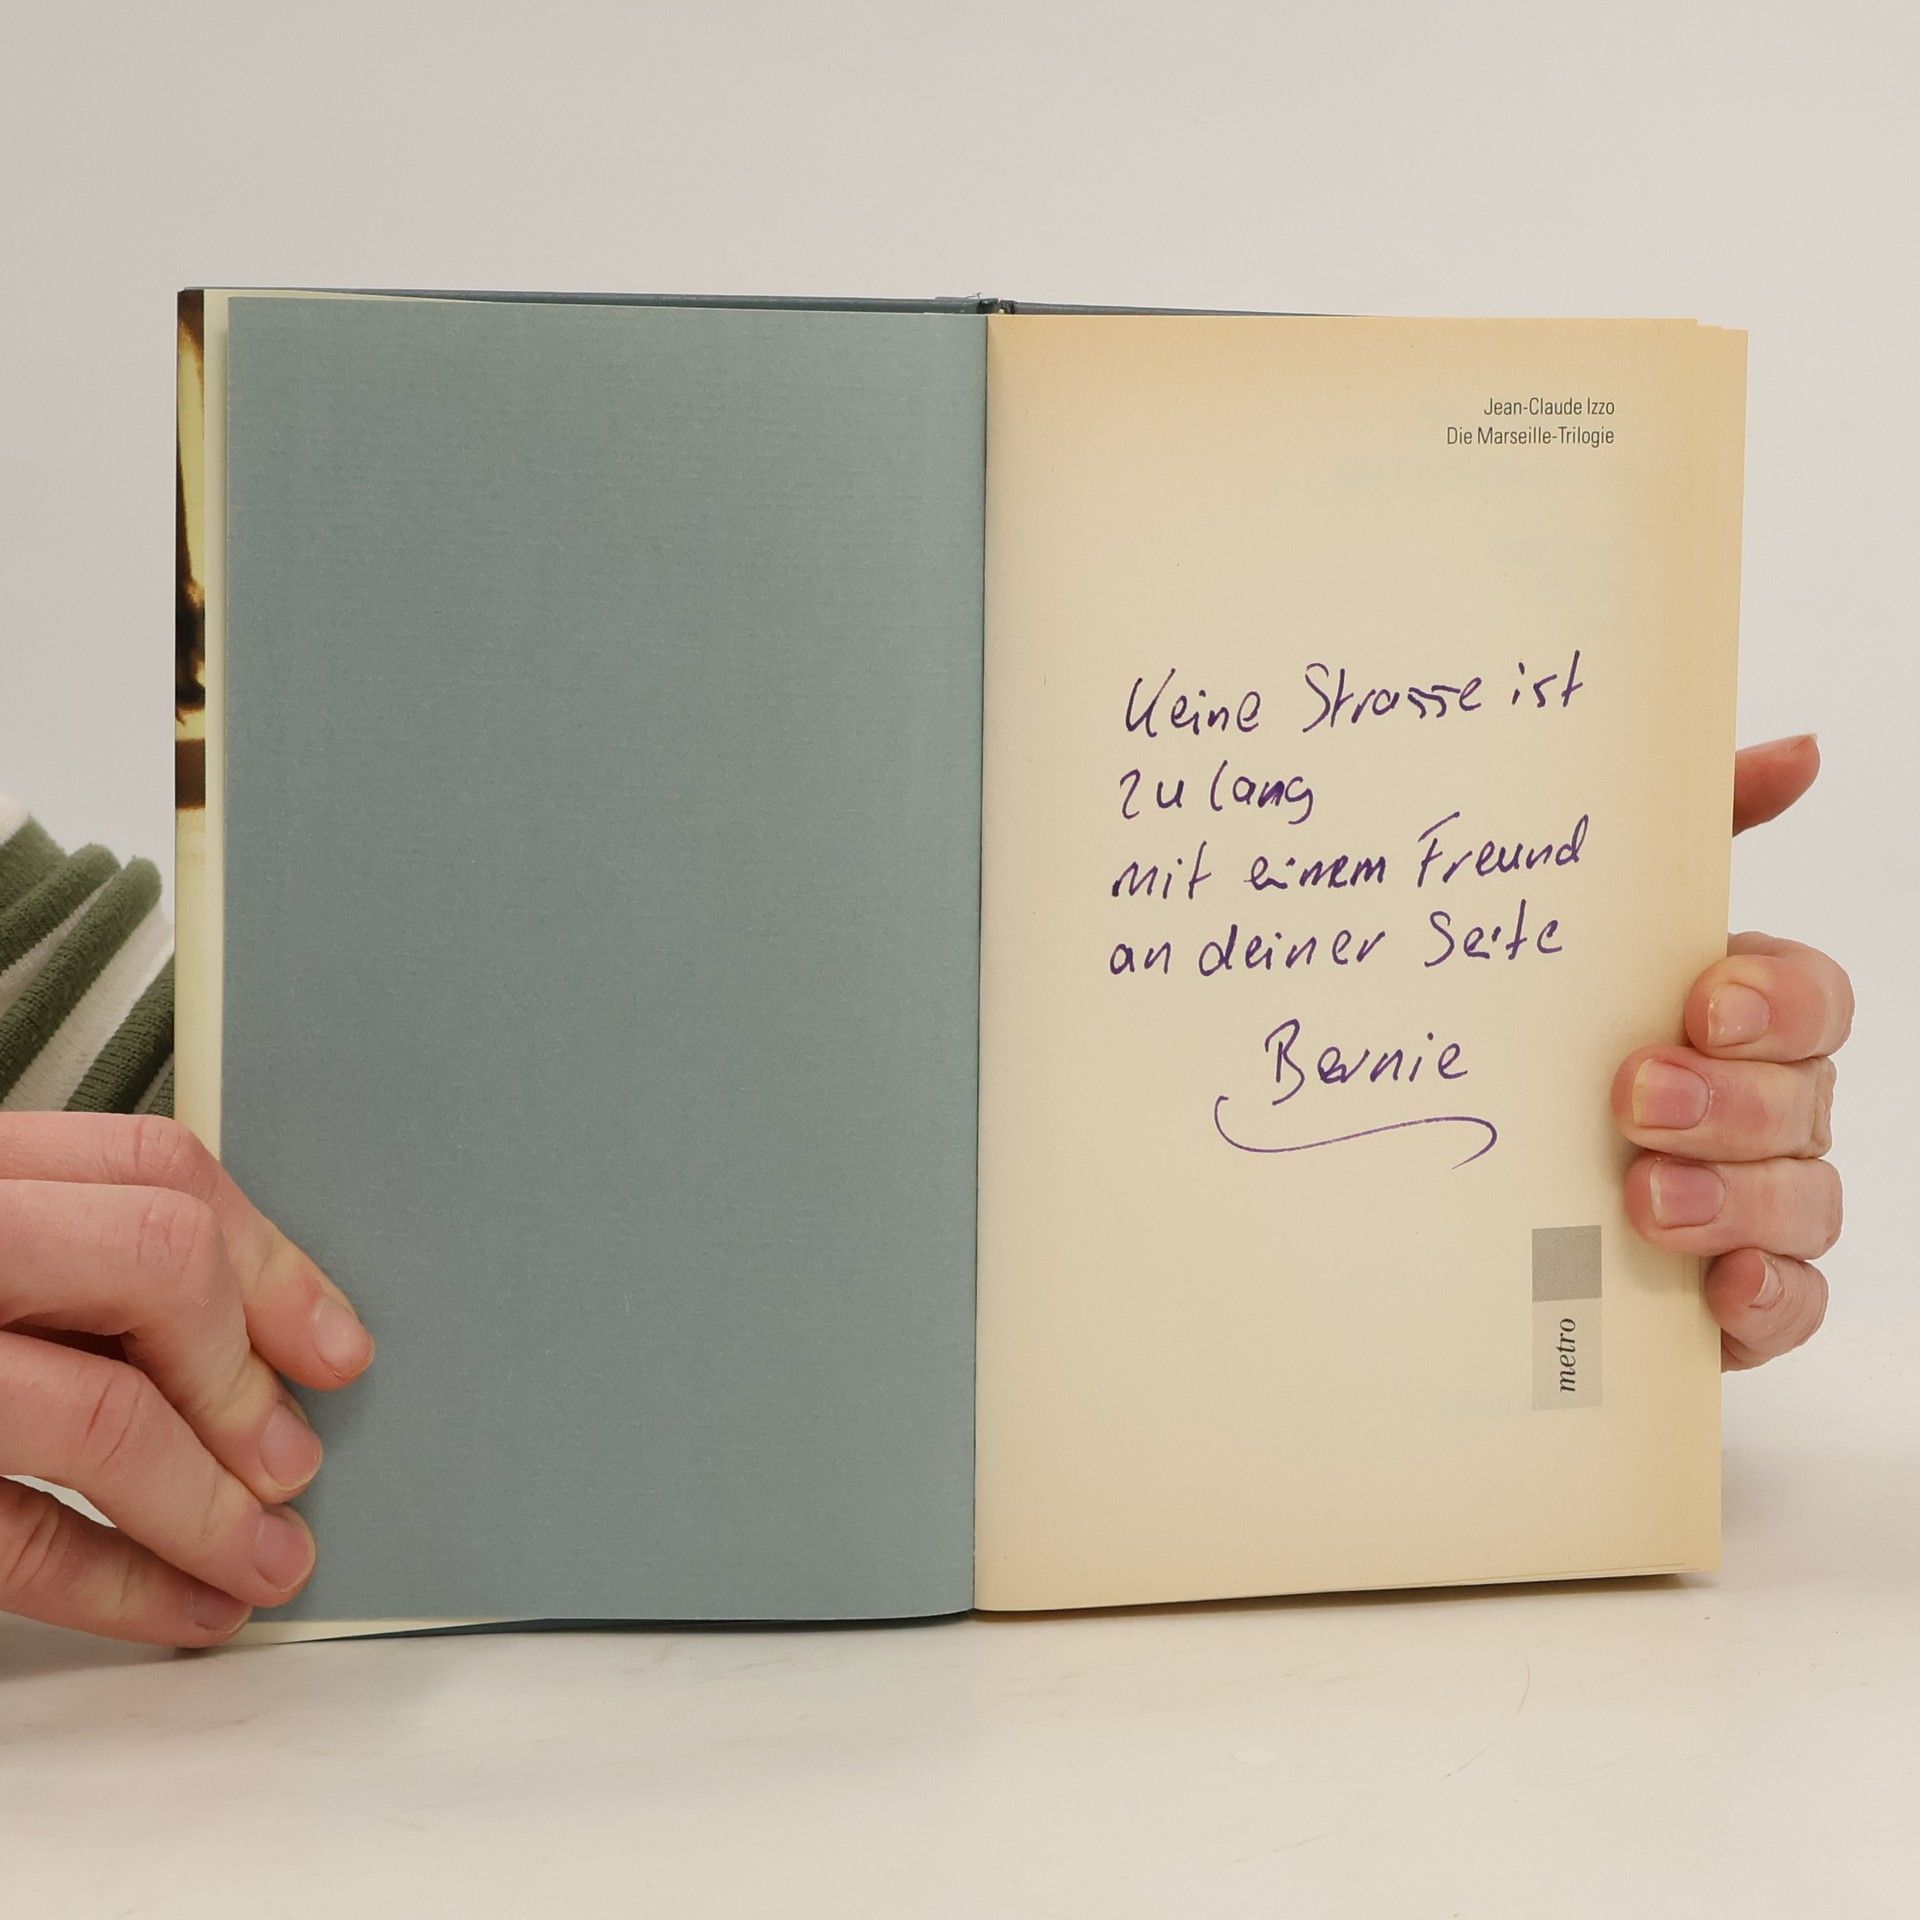 Jean-Claude Izzo
Die Marseille-Trilogie
Keine Strasse ist
zu lang
mit einem Freund
an deiner Seite
Bernie
metro